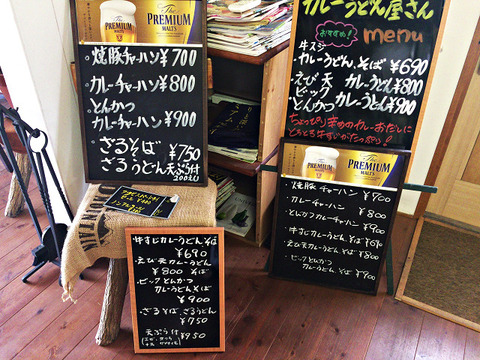 The
PREMIUM
MALT'S
・焼豚チャーハン ¥700
・カレーチャーハン ¥800
・とんかつ
カレーチャーハン ¥900
・ざるそば ¥750
ざるうどん 天ぷら付
カレーうどん屋さん
おすすめ!
menu
牛スジ
カレーうどん、そば ¥690
・えび天 カレーうどん ¥800
・ビッグ
とんかつ カレーうどん ¥900
ちょっぴり辛めのカレーおだしに
The
PREMIUM
MALT'S
・焼豚チャーハン ¥700
・カレーチャーハン ¥800
・とんかつカレーチャーハン
¥900
・牛すじカレーうどん そば ¥690
・えび天カレーうどん そば ¥800
・ビッグとんかつ
カレーうどん そば ¥900
牛すじカレーうどん そば
¥690
・えび天カレーうどん
¥800 そば
・ビッグ とんかつ
カレーうどん そば
¥900
・ざるそば ざるうどん
¥750
天ぷら付
¥950